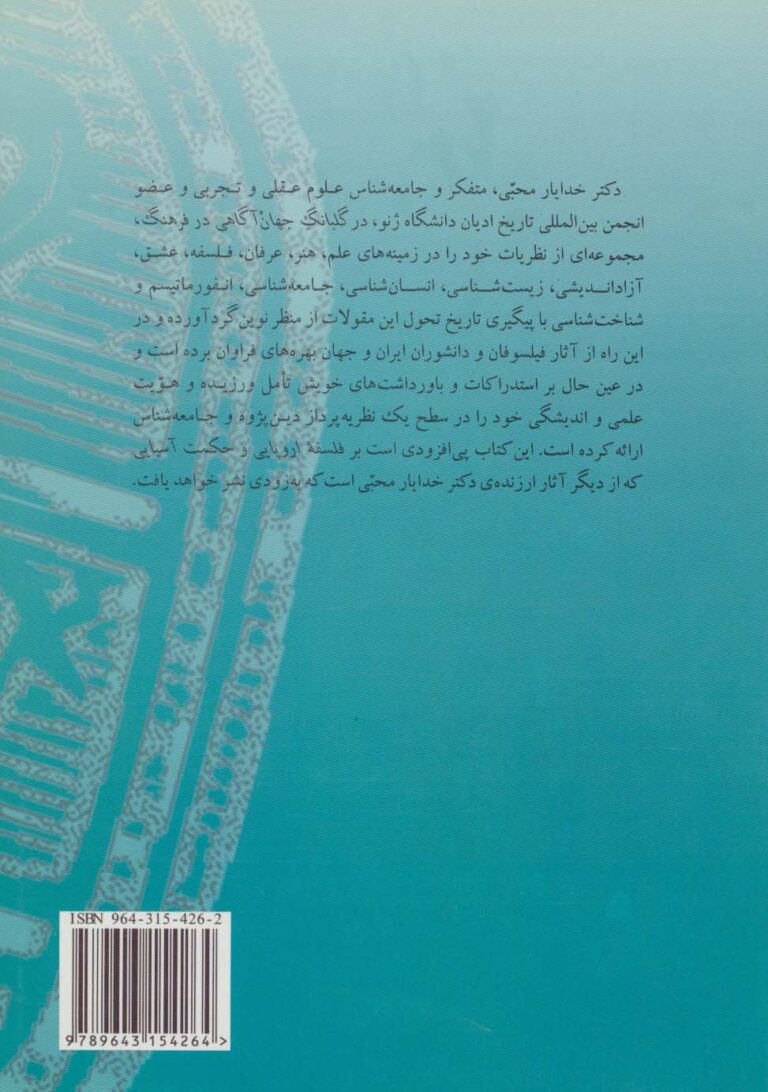 دکتر خدایار محبّی، متفکر و جامعه‌شناس علوم عقلی و تجربی و عضو
انجمن بین‌المللی تاریخ ادیان دانشگاه ژنو، در گلبانگ جهانْ‌آگاهی در فرهنگ،
مجموعه‌ای از نظریات خود را در زمینه‌های علم، هنر، عرفان، فلسفه، عشق،
آزاداندیشی، زیست‌شناسی، انسان‌شناسی، جامعه‌شناسی، انفورماتیسم و
شناخت‌شناسی با پیگیری تاریخ تحول این مقولات از منظر نوین گرد آورده و در
این راه از آثار فیلسوفان و دانشوران ایران و جهان بهره‌های فراوان برده است و
در عین حال بر استدراکات و باورداشت‌های خویش تأمل ورزیده و هویّت
علمی و اندیشگی خود را در سطح یک نظریه‌پرداز دین‌پژوه و جامعه‌شناس
ارائه کرده است. این کتاب پی‌افزودی است بر فلسفهٔ اروپایی و حکمت آسیایی
که از دیگر آثار ارزنده‌ی دکتر خدایار محبّی است که به‌زودی نشر خواهد یافت.
ISBN 964-315-426-2
9 789643 154264 >